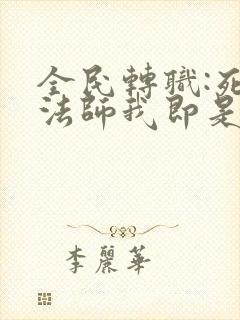 全民轉職:死
法師我即是
李麗華